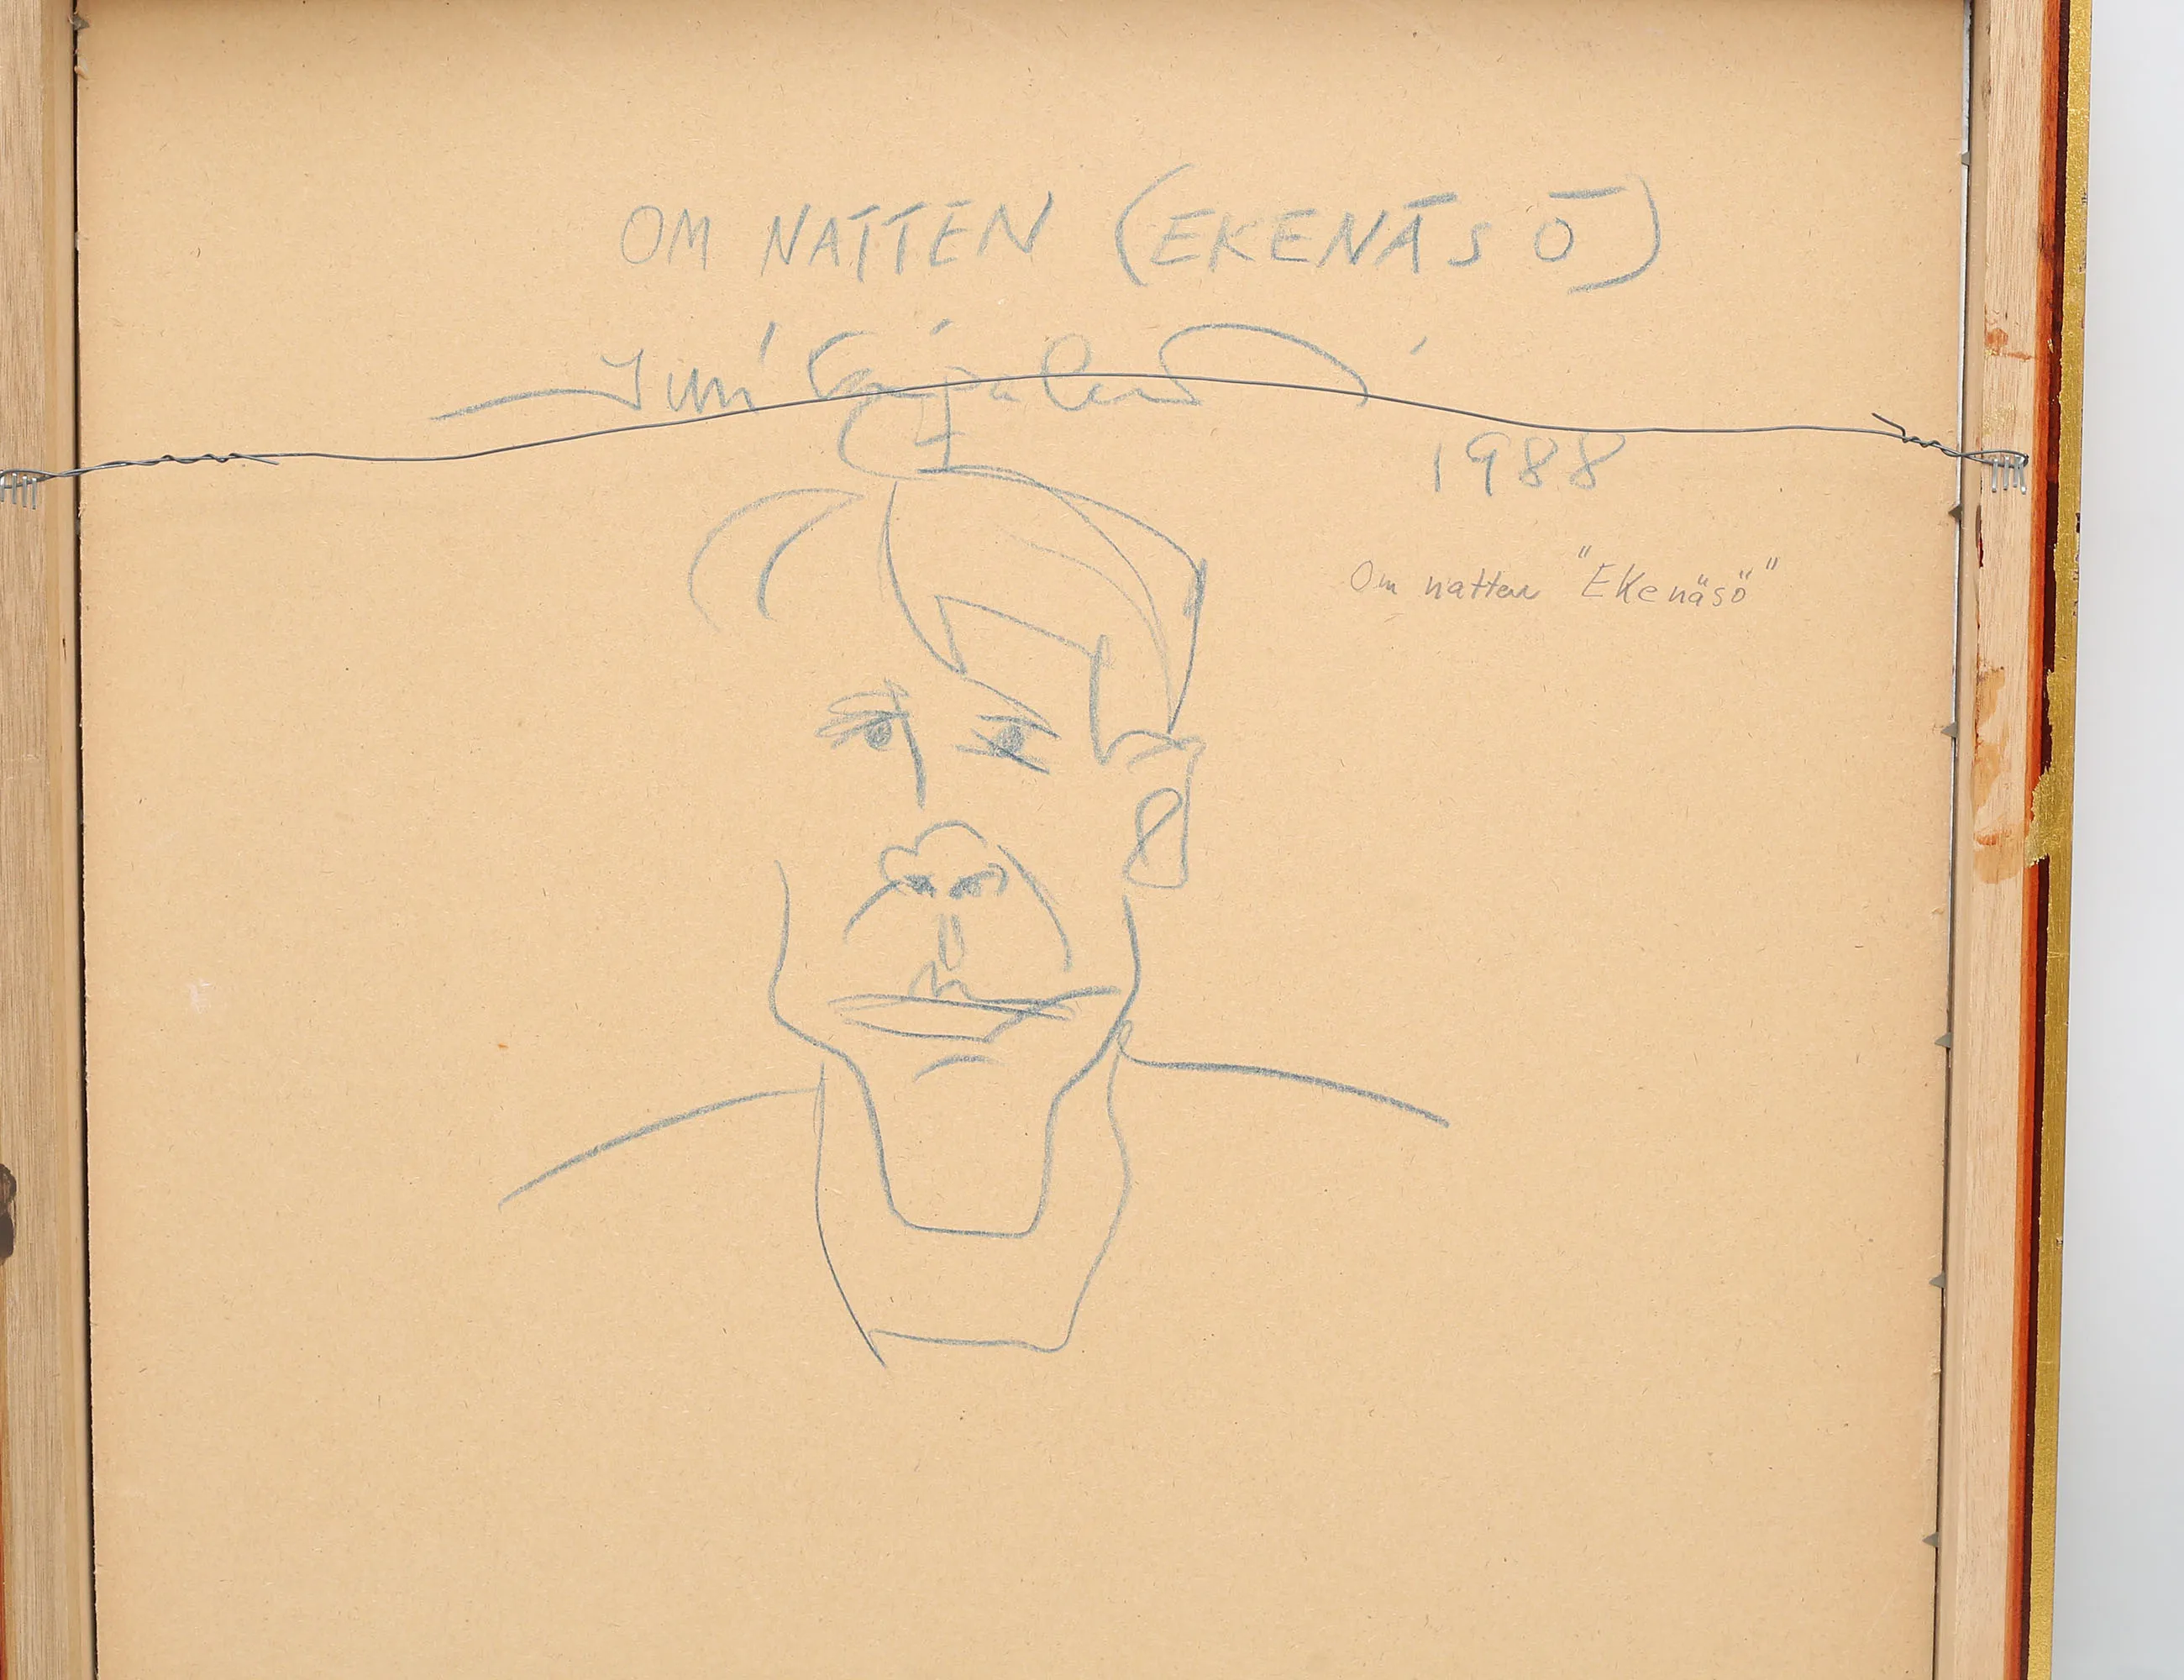 OM NATTEN (EKENĀSŌ)
1988
Om natten "Ekenäsö"